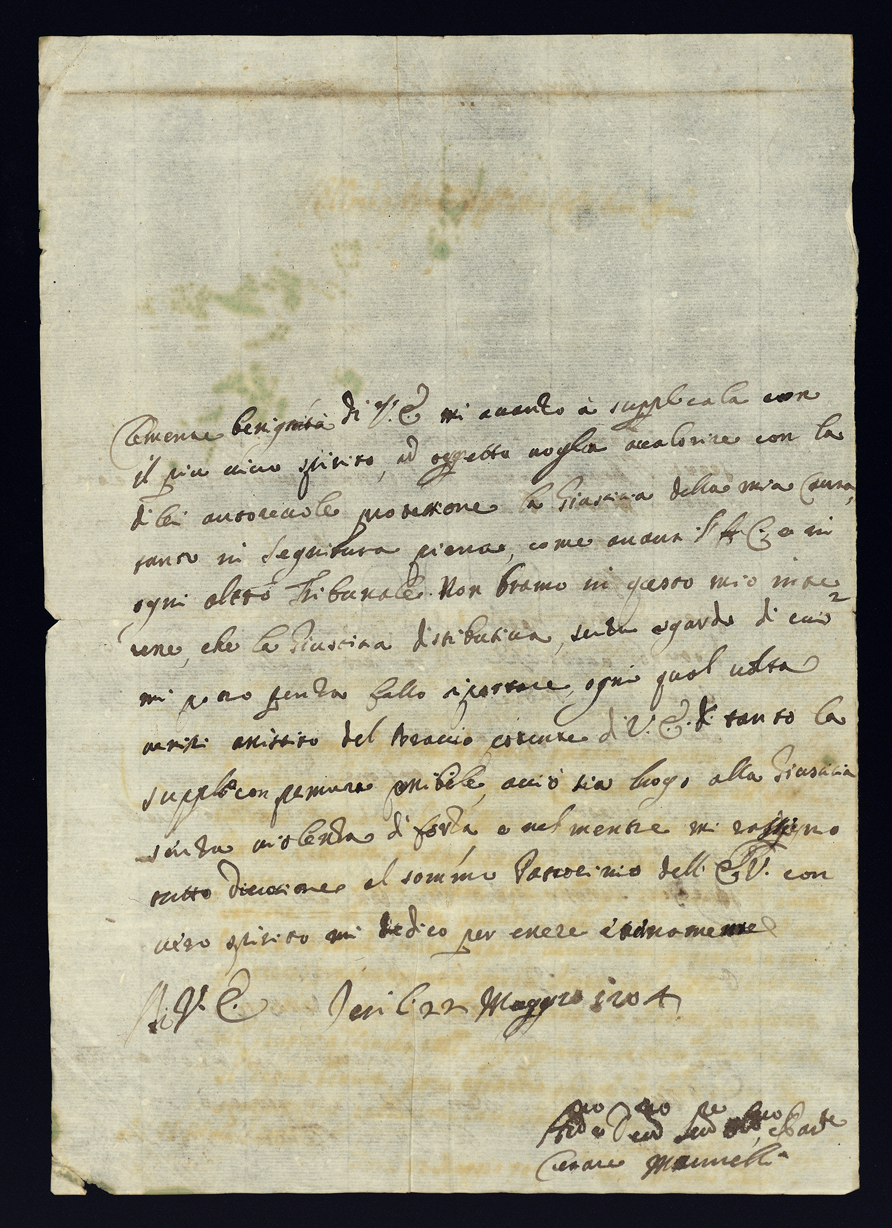 Clemente benignità di V. E. mi avanzo à supplicarla con
il piu vivo spirito, ad oggetto voglia avalorire con la
di lei autorevole protezione la Giustizia della mia Causa,
tanto in Segnitura piena, come avanti S. E. e in
ogni altro Tribunale. Non bramo in questo mio inte
resse, che la Giustizia distributiva, senza sgardo di
mi senza fallo riportare, ogni qual volta
venisi assistito del braccio di V. E. di tanto la
suppl.º con premura posibile, acciò sia luogo alla Giustizia
senza violenza di forza e nel mentre mi rassegno
tutto Divozione al sommo Patrocinio dell' E. V. con
vero spirito mi dedico per essere eternamente
Di V. E. Jesi li 22 Maggio 1704
Dev.mo Ser.re
Cesare Mannelli